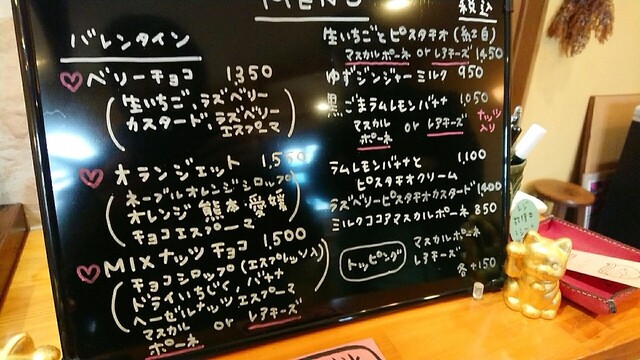 MENU
税込
バレンタイン
ベリーチョコ 1350
(生いちご、ラズベリー
カスタード、ラズベリー
エスプーマ)
オランジェット 1,550
(ネーブルオレンジシロップ
オレンジ 熊本・愛媛
チョコエスプーマ)
MIXナッツチョコ 1,500
(チョコシロップ(エスプレッソ入)
ドライいちじく、バナナ
ヘーゼルナッツエスプーマ)
マスカルポーネ or レアチーズ
生いちごとピスタチオ(紅白)
マスカルポーネ or レアチーズ 1450
ゆずジンジャーミルク 950
黒ごまラムレモンバナナ 1,050
マスカルポーネ or レアチーズ
ナッツ入り
ラムレモンバナナと 1,100
ピスタチオクリーム
ラズベリーピスタチオカスタード 1400
ミルクココアマスカルポーネ 850
トッピング
マスカルポーネ
レアチーズ
各+150